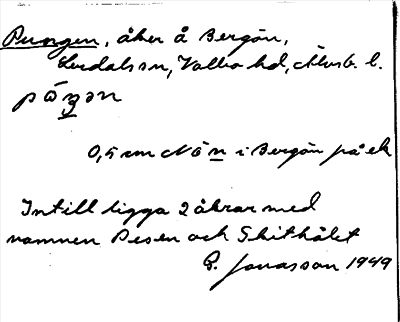 Pungen, åker å Bergön,
Lerdals sn, Valbo hd, Älvsb. l.
0,5 cm N ö n i Bergön på ek
Intill ligga 2 åkrar med
namnen Pesen och Skithålet
G. Jonasson 1949